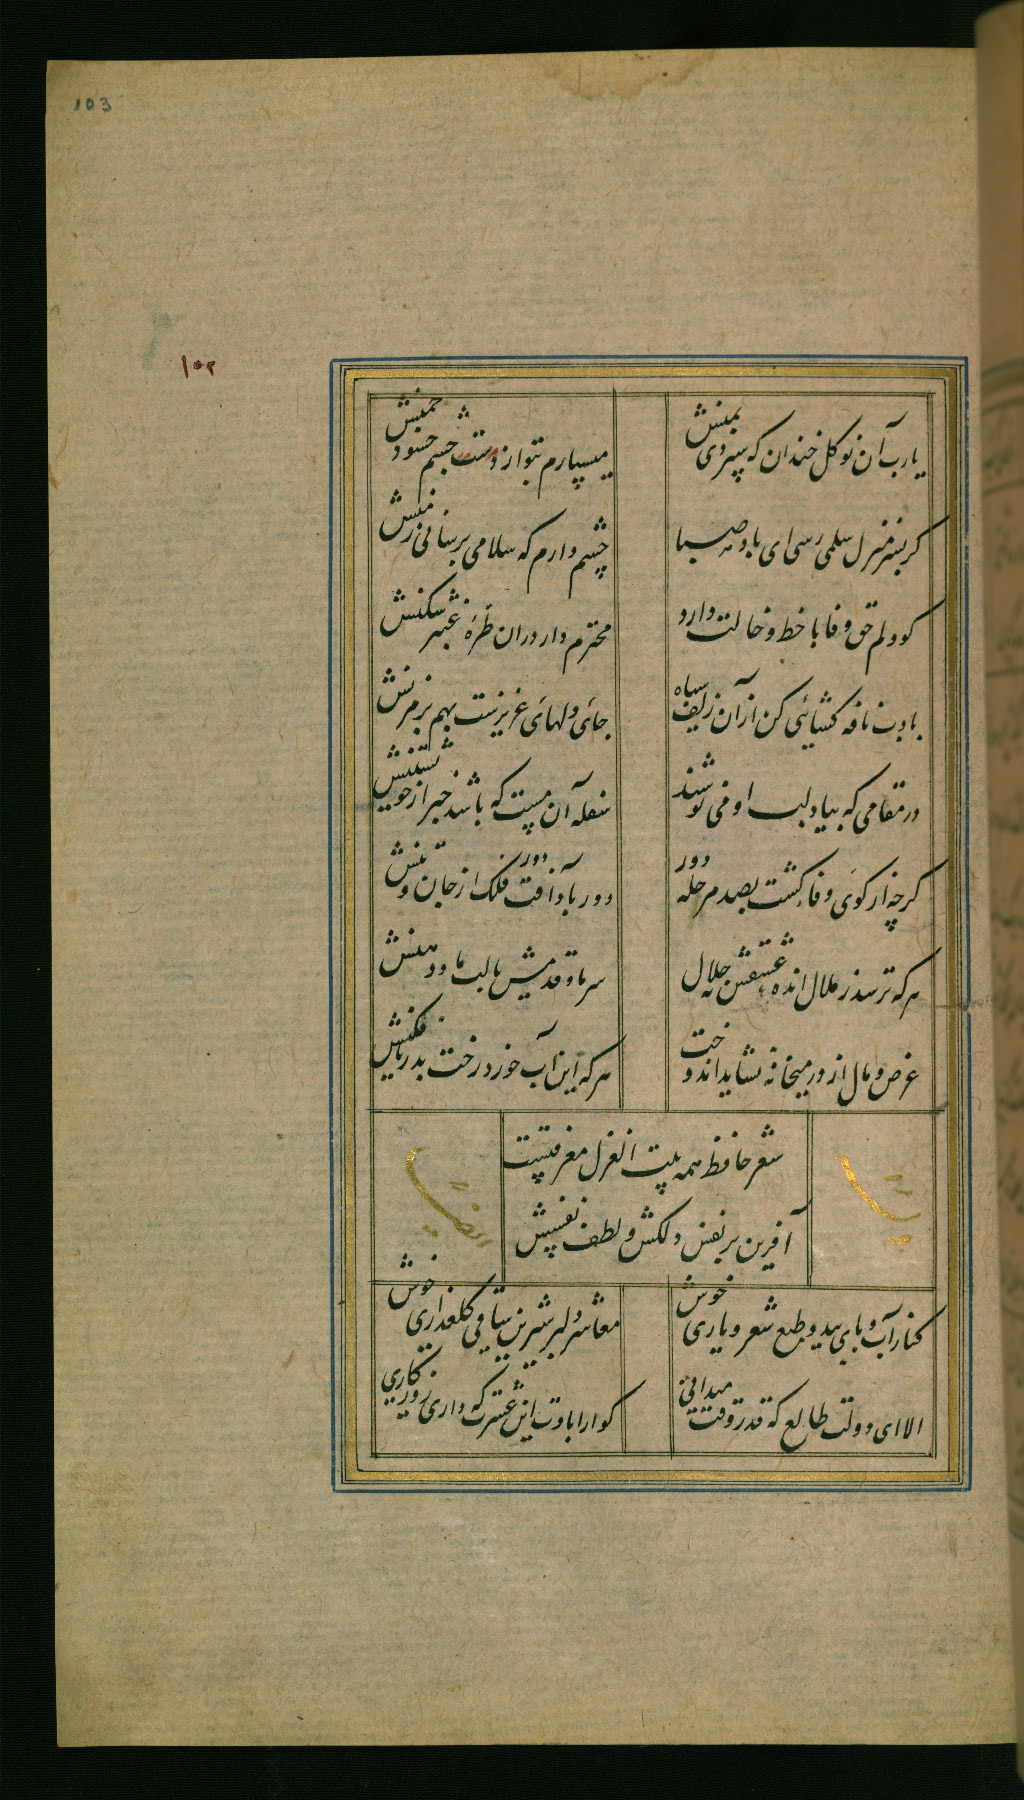 103
۱۰۲
یارب آن نوکل خندان که سپردی بمنش
میسپارم بتو از دست چسم حسود چمنش
کر بسر منزل سلمی رسی ای باد صبا
چشم دارم که سلامی برسانی زمنش
کو دلم حق وفا با خط و خالت دارد
محترم دار دران طرهٔ عنبر شکنش
بادب نافه کشائی کن از آن زلف سیاه
جای دلهای عزیزست بهم بر مزنش
در مقامی که بیاد لب او می نوشند
سفله آن مست که باشد خبر از خویشتنش
کرچه از کوی وفا کشت بصد مرحله دور
دور باد آفت دور فلک از جان و تنش
هر که ترسد ز ملال انده عشقش نه حلال
سر ما و قدمش یا لب ما و دهنش
عرض و مال از در میخانه نشاید اندوخت
هر که این آب خورد رخت بدریا فکنش
شعر حافظ همه بیت الغزل معرفتست
آفرین بر نفس دلکش و لطف نفسش
کنار آب و پای بید و طبع شعر و یاری خوش
معاشر دلبر شیرین و ساقی کلعذاری خوش
الا ای دولت طالع که قدر وقت میدانی
کوارا بادت این عشرت که داری روزکاری